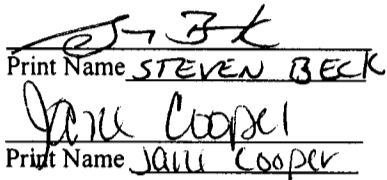 Print Name STEVEN BECK
Jane Cooper
Print Name Jane Cooper